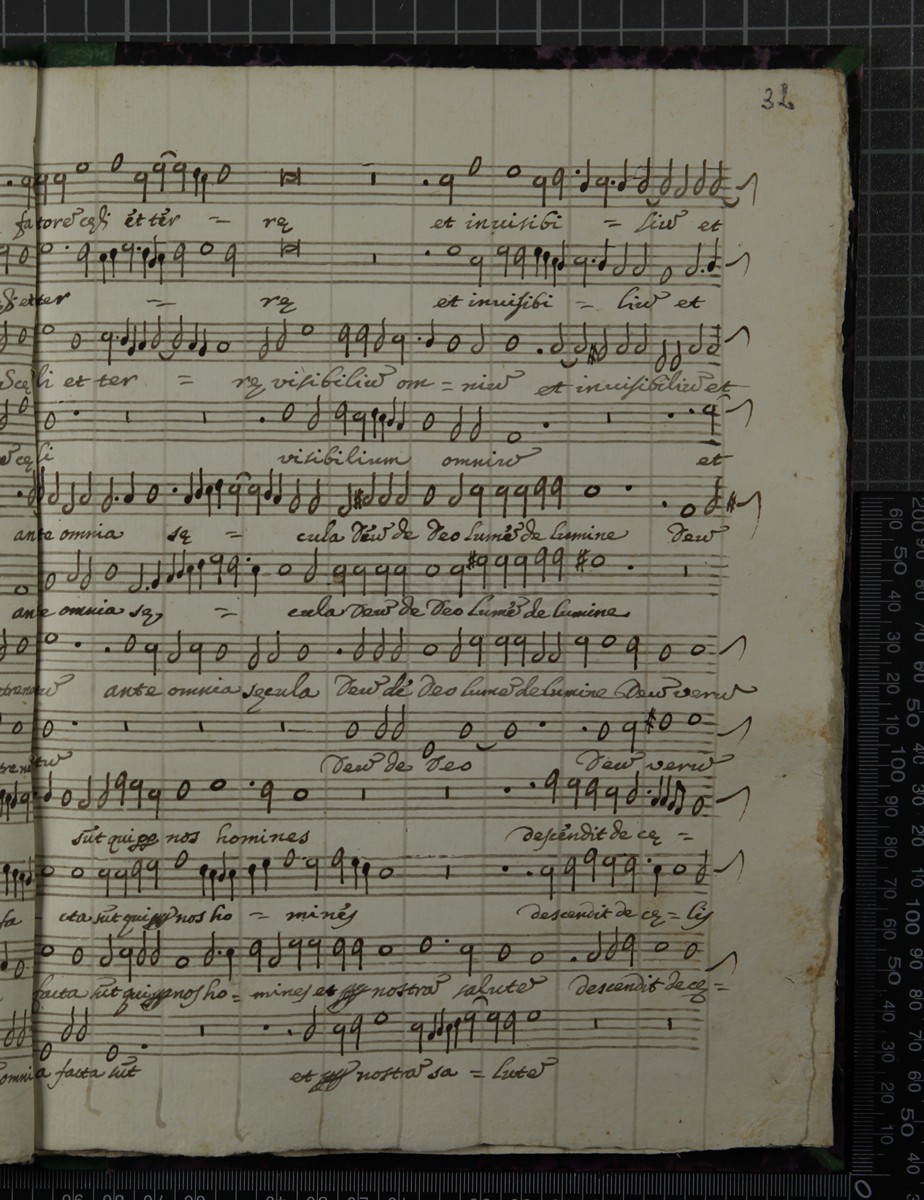 32
fatorē cęli et ter = rę et inuisibi = liū et
et ter = rę et inuisibi = liū et
cęli et ter = rę visibiliū om = niū et inuisibiliū et
cęli visibilium omniū et
ante omnia sę = cula Deū de Deo lumē de lumine Deū
ante omnia sę = cula Deū de Deo lumē de lumine
ante omnia sęcula Deū de Deo lumē de lumine Deū verū
Deū de Deo Deū verū
sūt qui nos homines descēndit de cę =
fa cta sūt qui nos ho = mines descendit de cę = lis
facta sūt qui nos ho = mines et nostrā salutē descendit de cę =
omnia facta sūt et nostrā sa = lutē
60 50 40 30 20 10 100 90 80 70 60 50 40 30 20 10